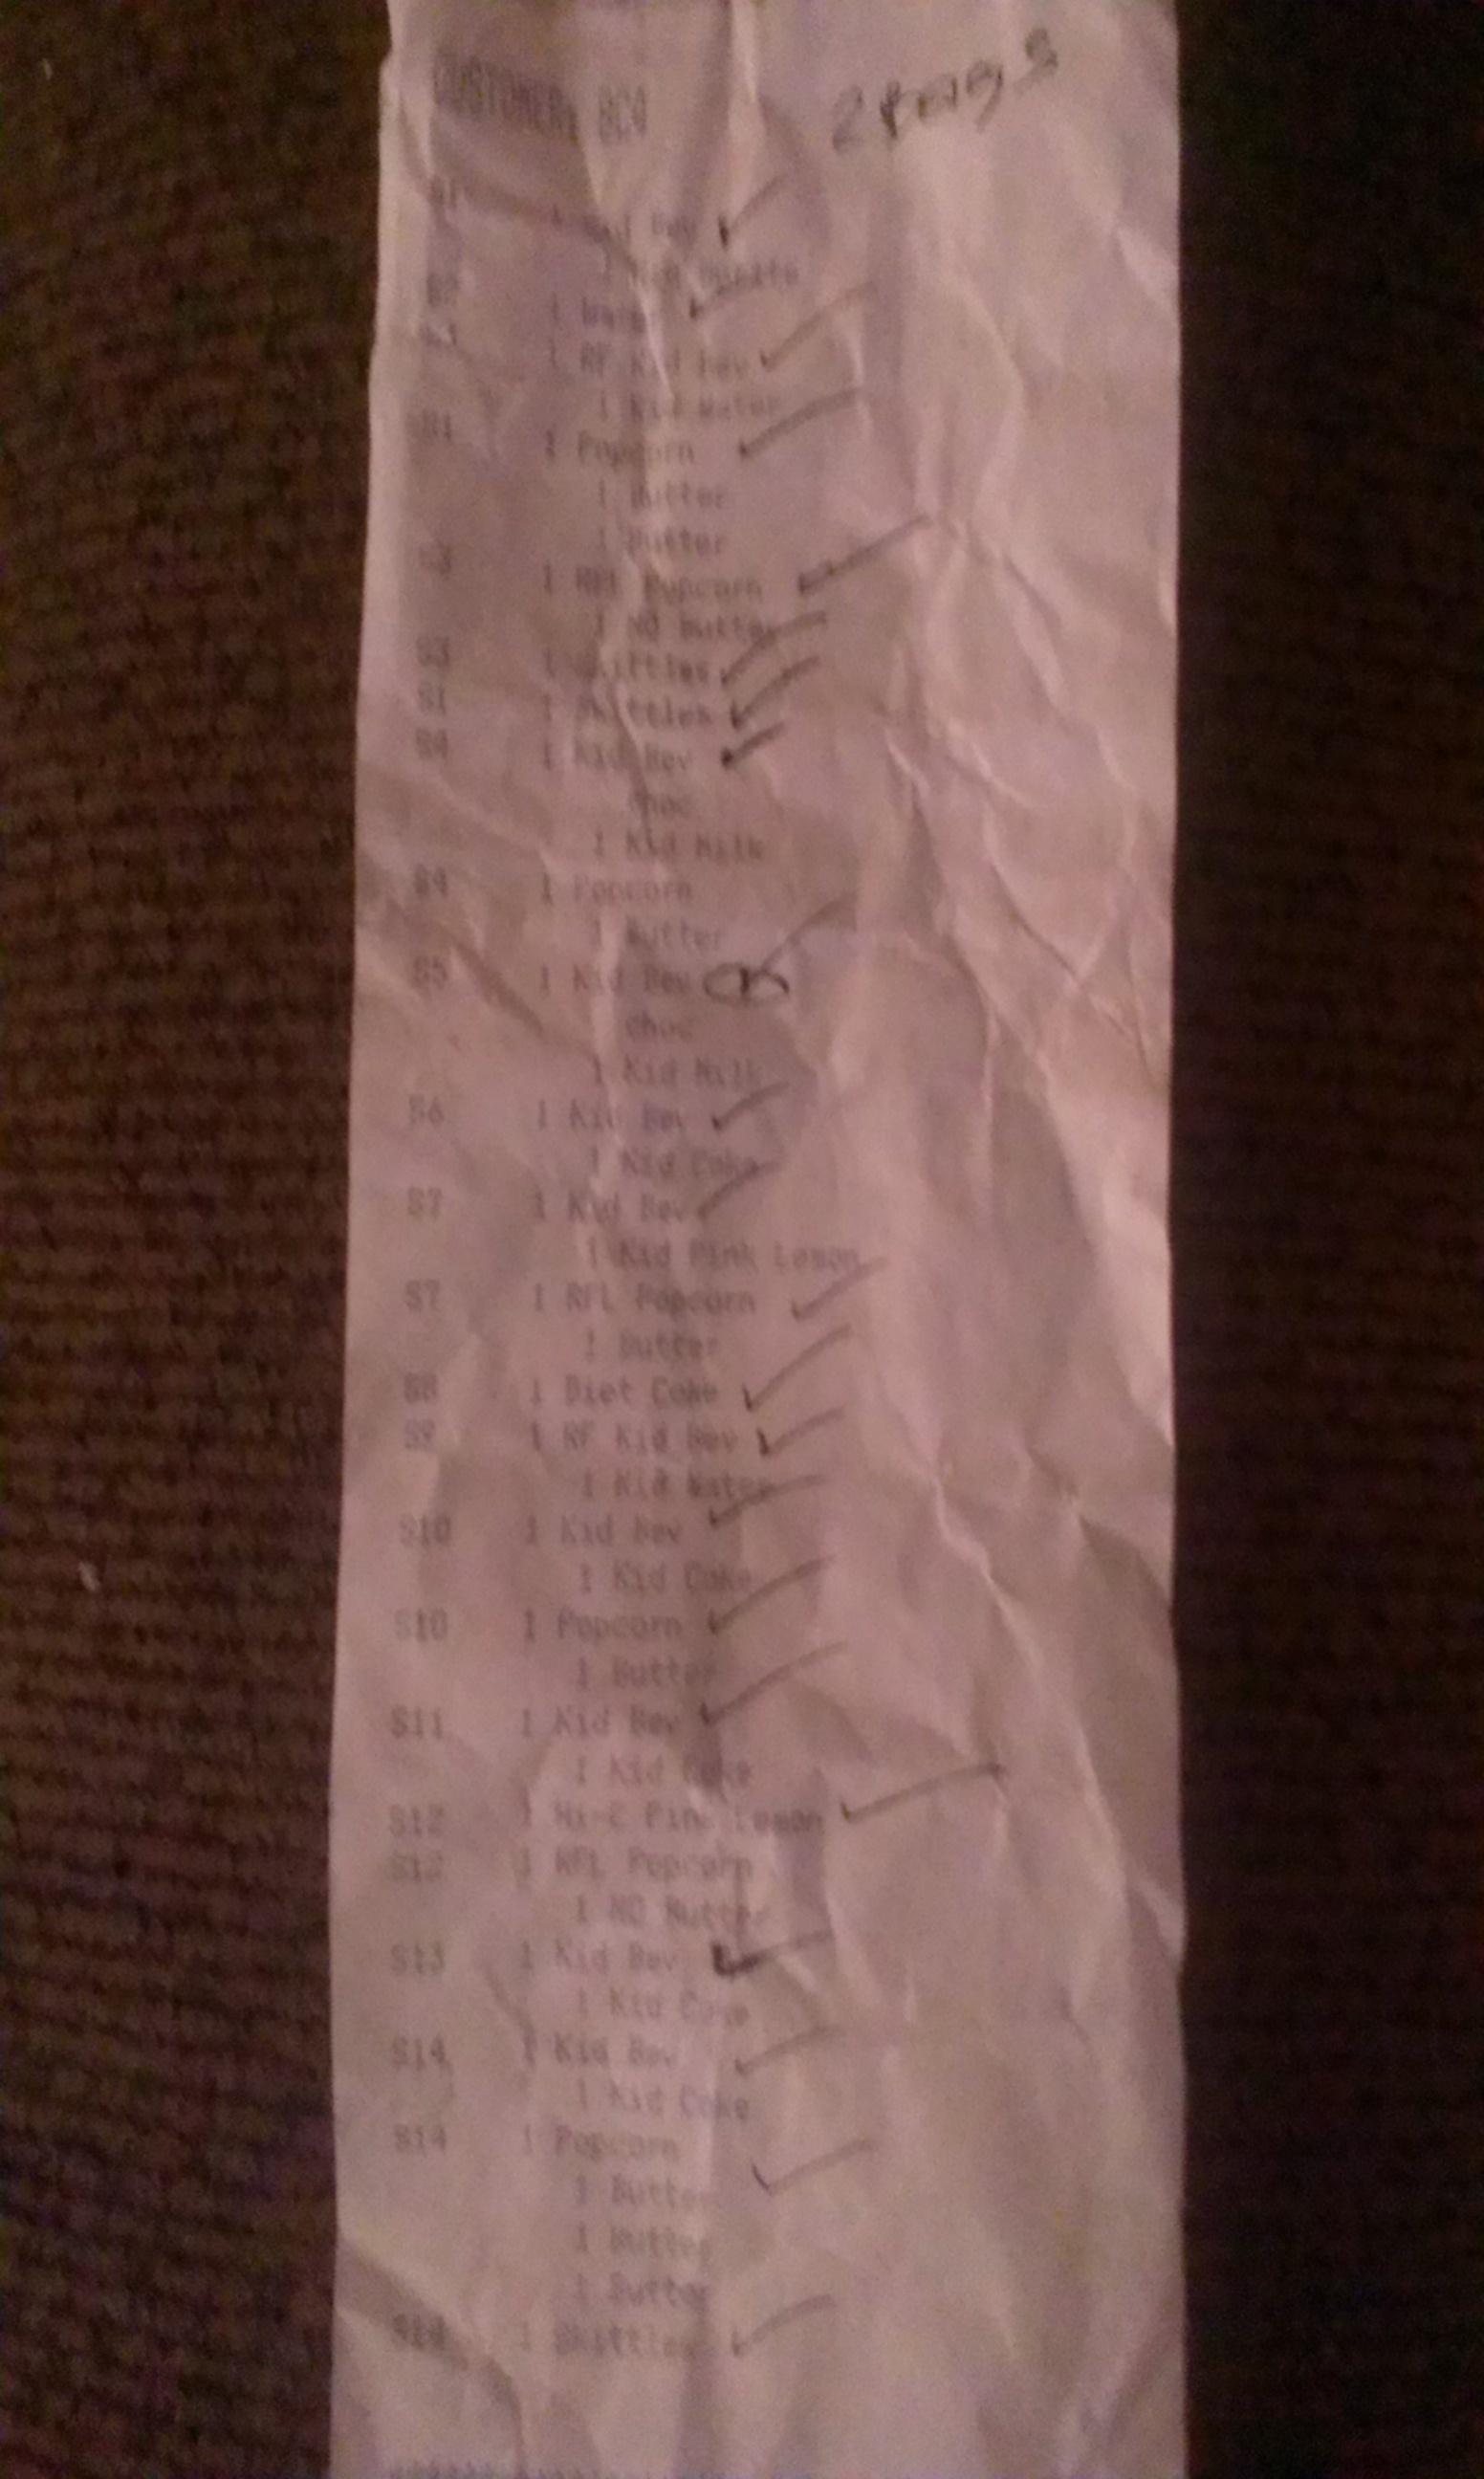 CUSTOMER: BC4
2 bags
S1 1 Kid Bev
1
S2 1 Water
S3 1 RF Kid Bev
1 Kid Water
S1 1 Popcorn
1 Butter
1 Butter
S3 1 RFL Popcorn
1 NO Butter
S3 1 Skittles
S1 1 Skittles
S4 1 Kid Bev
Choc
1 Kid Milk
S4 1 Popcorn
1 Butter
S5 1 Kid Bev
Choc
1 Kid Milk
S6 1 Kid Bev
1 Kid Coke
S7 1 Kid Bev
1 Kid Pink Lemon
S7 1 RFL Popcorn
1 Butter
S8 1 Diet Coke
S9 1 RF Kid Bev
1 Kid Water
S10 1 Kid Bev
1 Kid Coke
S10 1 Popcorn
1 Butter
S11 1 Kid Bev
1 Kid Coke
S12 1 Hi-C Pink Lemon
S12 1 RFL Popcorn
1 NO Butter
S13 1 Kid Bev
1 Kid Coke
S14 1 Kid Bev
1 Kid Coke
S14 1 Popcorn
1 Butter
1 Butter
1 Butter
S14 1 Skittles